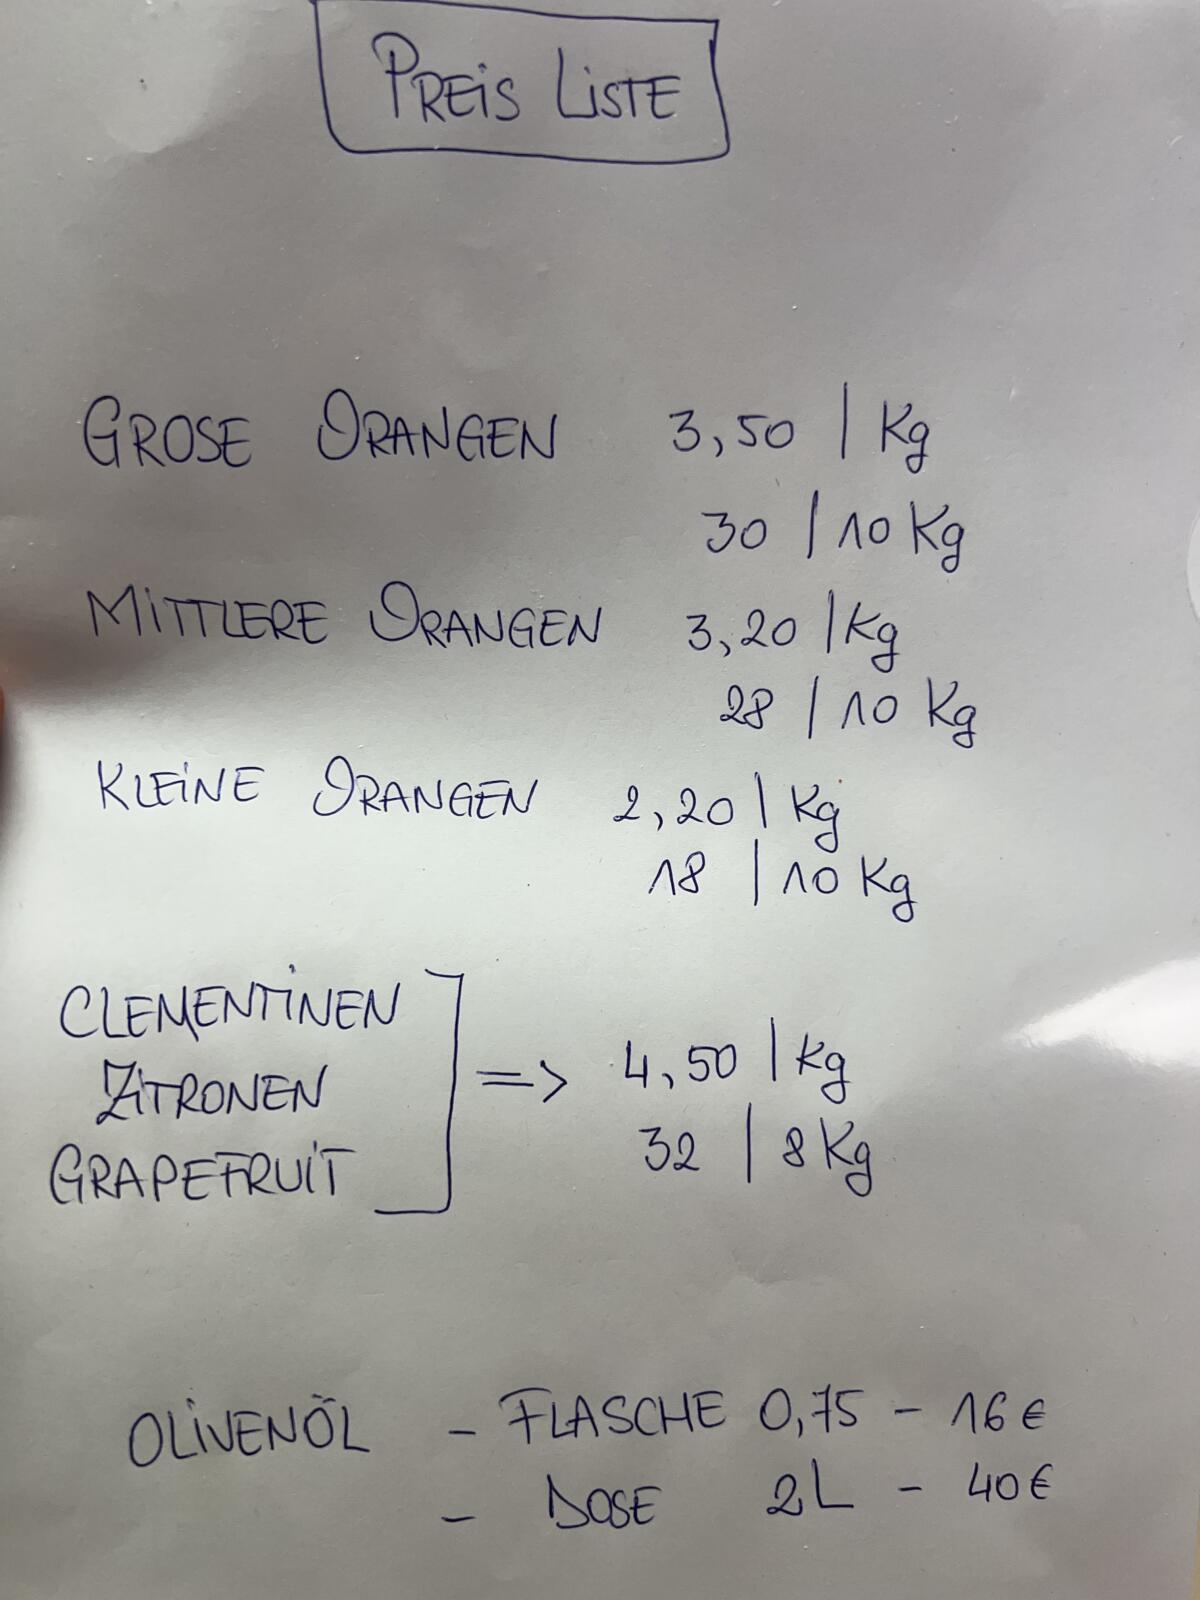 PREIS LISTE
GROSE ORANGEN 3,50 | Kg
30 | 10 Kg
MITTLERE ORANGEN 3,20 | Kg
28 | 10 Kg
KLEINE ORANGEN 2,20 | Kg
18 | 10 Kg
CLEMENTINEN
ZITRONEN => 4,50 | Kg
GRAPEFRUIT 32 | 8 Kg
OLIVENÖL - FLASCHE 0,75 - 16 €
- DOSE 2L - 40 €